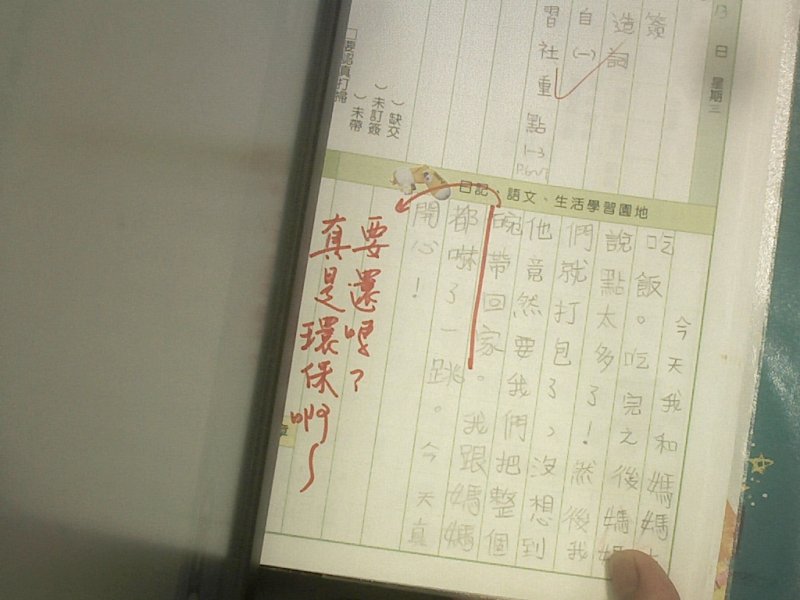 日 星期三
簽
造詞
自(一)
習社重點
1-3
□要認真打掃
( )缺交
( )未訂簽
( )未帶
日記、語文、生活學習園地
今天我和媽媽
吃飯。吃完之後媽媽
說點太多了!然後我
們就打包了,沒想到
他竟然要我們把整個
碗帶回家。我跟媽媽
都嚇了一跳。今天真
開心!
要還嗎?
真是環保啊~